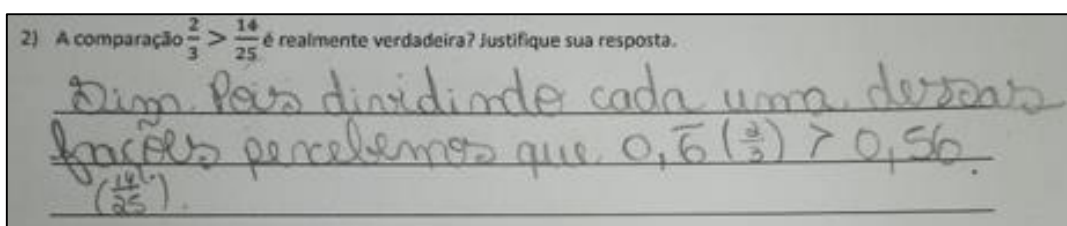 2) A comparação 2/3 > 14/25 é realmente verdadeira? Justifique sua resposta.
Sim. Pois dividindo cada uma dessas
frações percebemos que 0,6̅ (2/3) > 0,56.
(14/25).